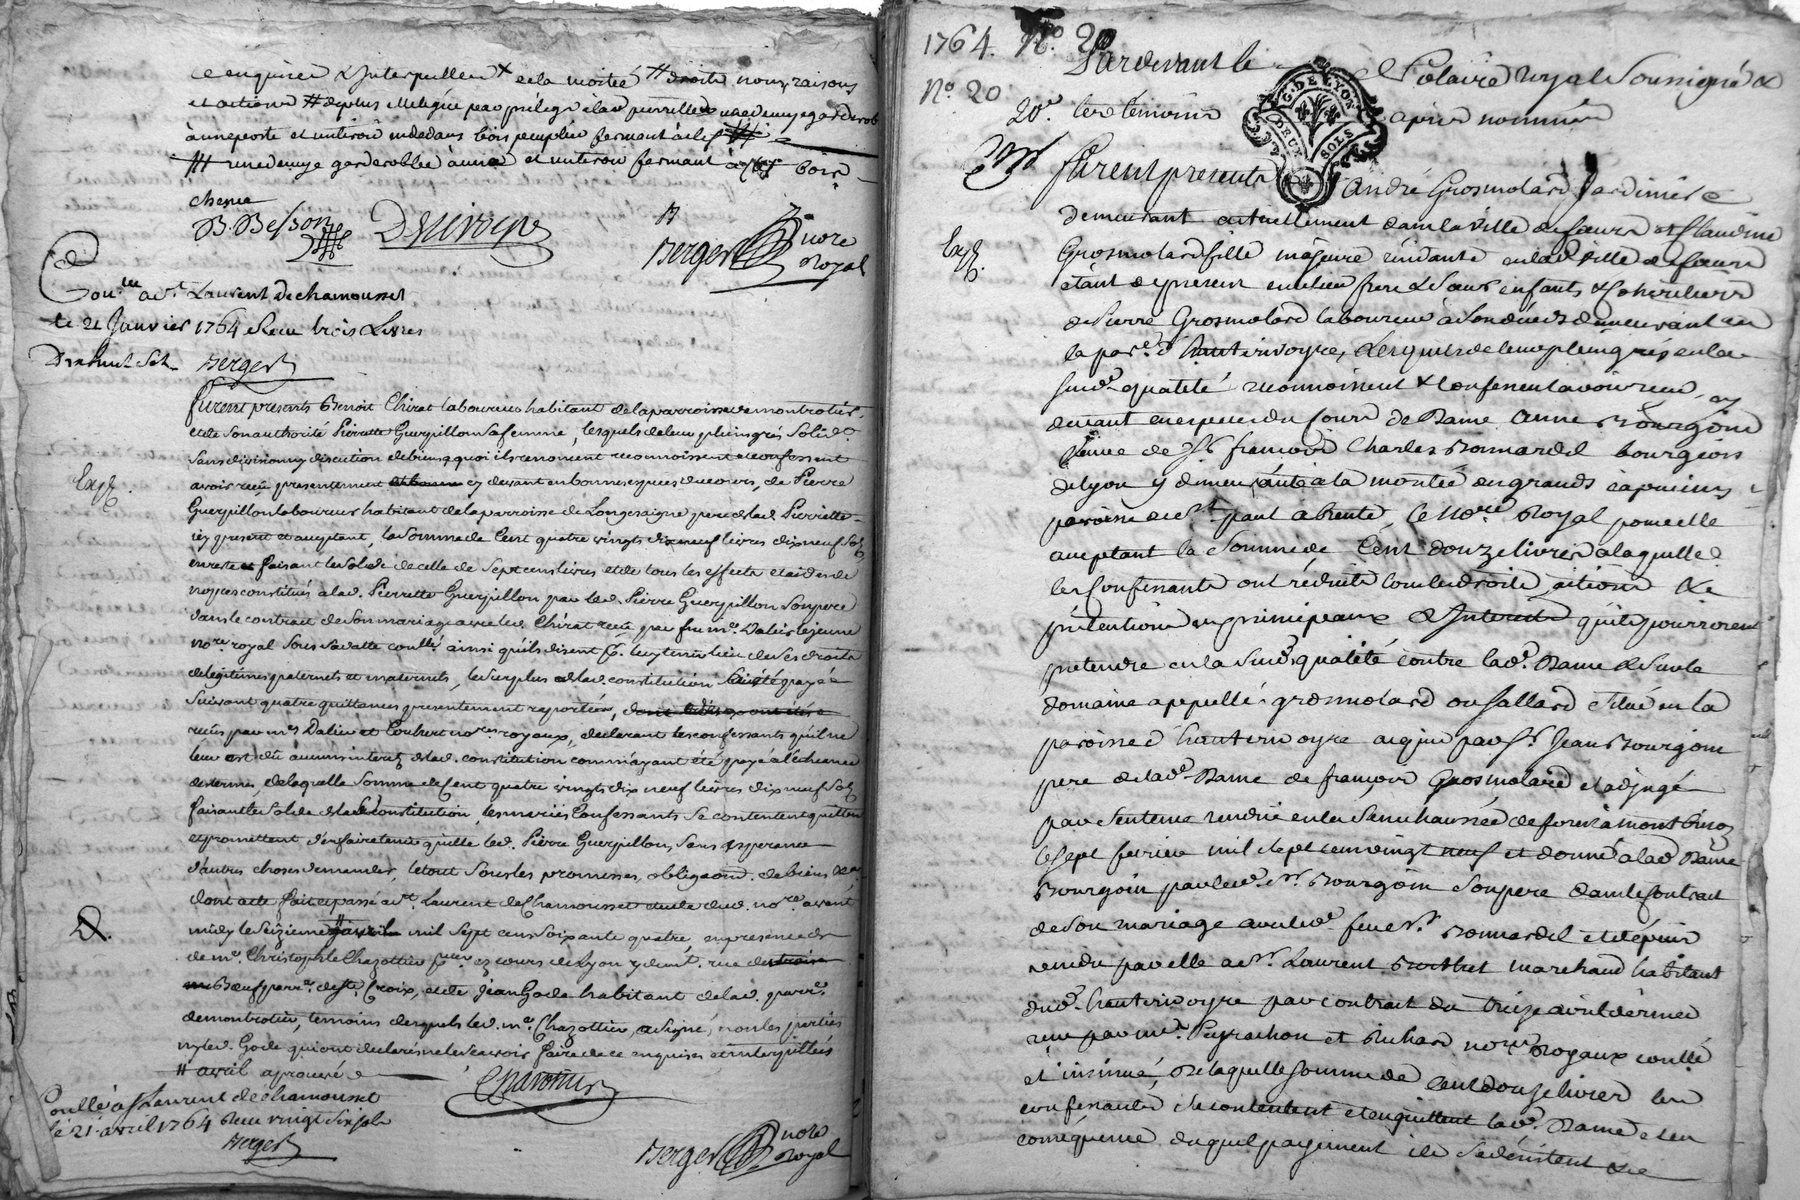 ce enquis et Interpellés x et la moitié # droits noms raisons
et actions # de plus
à une porte et un tiroir au dedans bois peuplier fermant à clef
# une demye garderobbe à une et un tiroir fermant à clef bois
chesne
B. Besson
Berger nore Royal
Con.lle a St Laurent de chamousset
le 21 Janvier 1764 Receu trois Livres
Berger
furent presents Benoit Chirat laboureur habitant de la parroisse de montrotier,
et de son authorité Pierrette Guerpillon sa femme, lesquels de leur plein grés solid.t
sans division ny discution de biens a quoi ils renoncent reconnoissent et confessent
Exp.
avoir receu presentement cy devant en bonnes especes du cours, de Pierre
Guerpillon laboureur habitant de la parroisse de Longessaigne pere de lad. Pierrette
icy present et acceptant, la somme de Cent quatre vingts dix neuf livres dix neuf sols
en reste et faisant le solde de celle de Sept cens livres et de tous les effects et aides de
nopces constitués à lad. Pierrette Guerpillon par led. Pierre Guerpillon son pere
dans le contrat de son mariage avec led. Chirat receu par feu me. Dalin le jeune
no.re royal sous sa datte conllé ainsi qu'ils disent pr. luy tenir lieu de ses droits
de légitimes paternels et maternels, le surplus de lad. constitution a été payé
suivant quatre quittances presentement raportées,
receus par mes Dalin et Coubert no.res royaux, declarant les confessants qu'il ne
leur est dû aucuns interets de lad. constitution comm'ayant été payé à l'echeance
des termes, de laquelle somme de Cent quatre vingts dix neuf livres dix neuf sols
faisant le solde de lad. Constitution, les mariés Confessants se contentent quittent
et promettent d'en faire tenir quitte led. Pierre Guerpillon, sans esperance
d'autres choses demander, le tout sous les promesses, obligaons. de biens &a.
dont acte fait et passé a St. Laurent de Chamousset etude dud. no.re avant
midy le seizieme # mil sept cens soixante quatre, en presence de
de me. Christophle Chazottier pcur ez cours de Lyon y demt. rue
Boeuf parr.e de Ste. Croix, et de Jean Gode habitant de lad. parr.e
de montrotier, temoins desquels led. me. Chazottier a signé, non les parties
ny led. Gode qui ont declarés ne le sçavoir faire de ce enquis et interpellés
# avril aprouvé
Chazottier
Conllé à St Laurent de chamousset
le 21 avril 1764 Receu vingt six sols
Berger
Berger nore Royal
1764. No. 20
No. 20
20e
Pardevant le Notaire royal soussigné &
les témoins après nommés
G. DE LYON
DEUX SOLS
furent presents André Grosmolard Jardinier
demeurant actuellement dans la ville de feurs et Claudine
Exp.
Grosmolard fille majeure résidante en lad. ville de feurs
étant de present en ce lieu frere & soeur enfants & cohéritiers
de Pierre Grosmolard laboureur demeurant en
la par.e d'hauterivoyre, Lesquels de leur plein gré en la
susd. qualité reconnoissent & confessent avoir receu cy
devant en especes du cours de Dame Anne Bourgoin
veuve de Sr françois Charles Bonnardel bourgeois
de Lyon y demeurante à la montée des grands capucins
paroisse de St. paul absente, le No.re Royal pour elle
acceptant la somme de Cent douze livres a laquelle
les Confessants ont réduits tous les droits, actions &
prétentions en principeaux & Interets qu'ils pourroient
pretendre en la susd. qualité contre lad. Dame & sur le
domaine appellé grosmolard ou fallard situé en la
paroisse d'hauterivoyre acquis par Sr. Jean Bourgoin
pere de lad. Dame de françois Grosmolard et adjugé
par sentence rendue en la Senechaussée de forez à montbrison
le sept fevrier mil sept cens vingt neuf et donné a lad. Dame
Bourgoin par led. Sr. Bourgoin son pere dans le contract
de son mariage avec led. feu Sr. Bonnardel et depuis
vendu par elle a Sr. Laurent marchand habitant
dud. hauterivoyre par contract du treize avril dernier
receu par me. Peyrachon et Richard nores Royaux conllé
et insinué, De laquelle somme de cent douze livres les
confessants se contentent et en quittent lad. Dame et en
conséquence duquel payement ils se désistent de